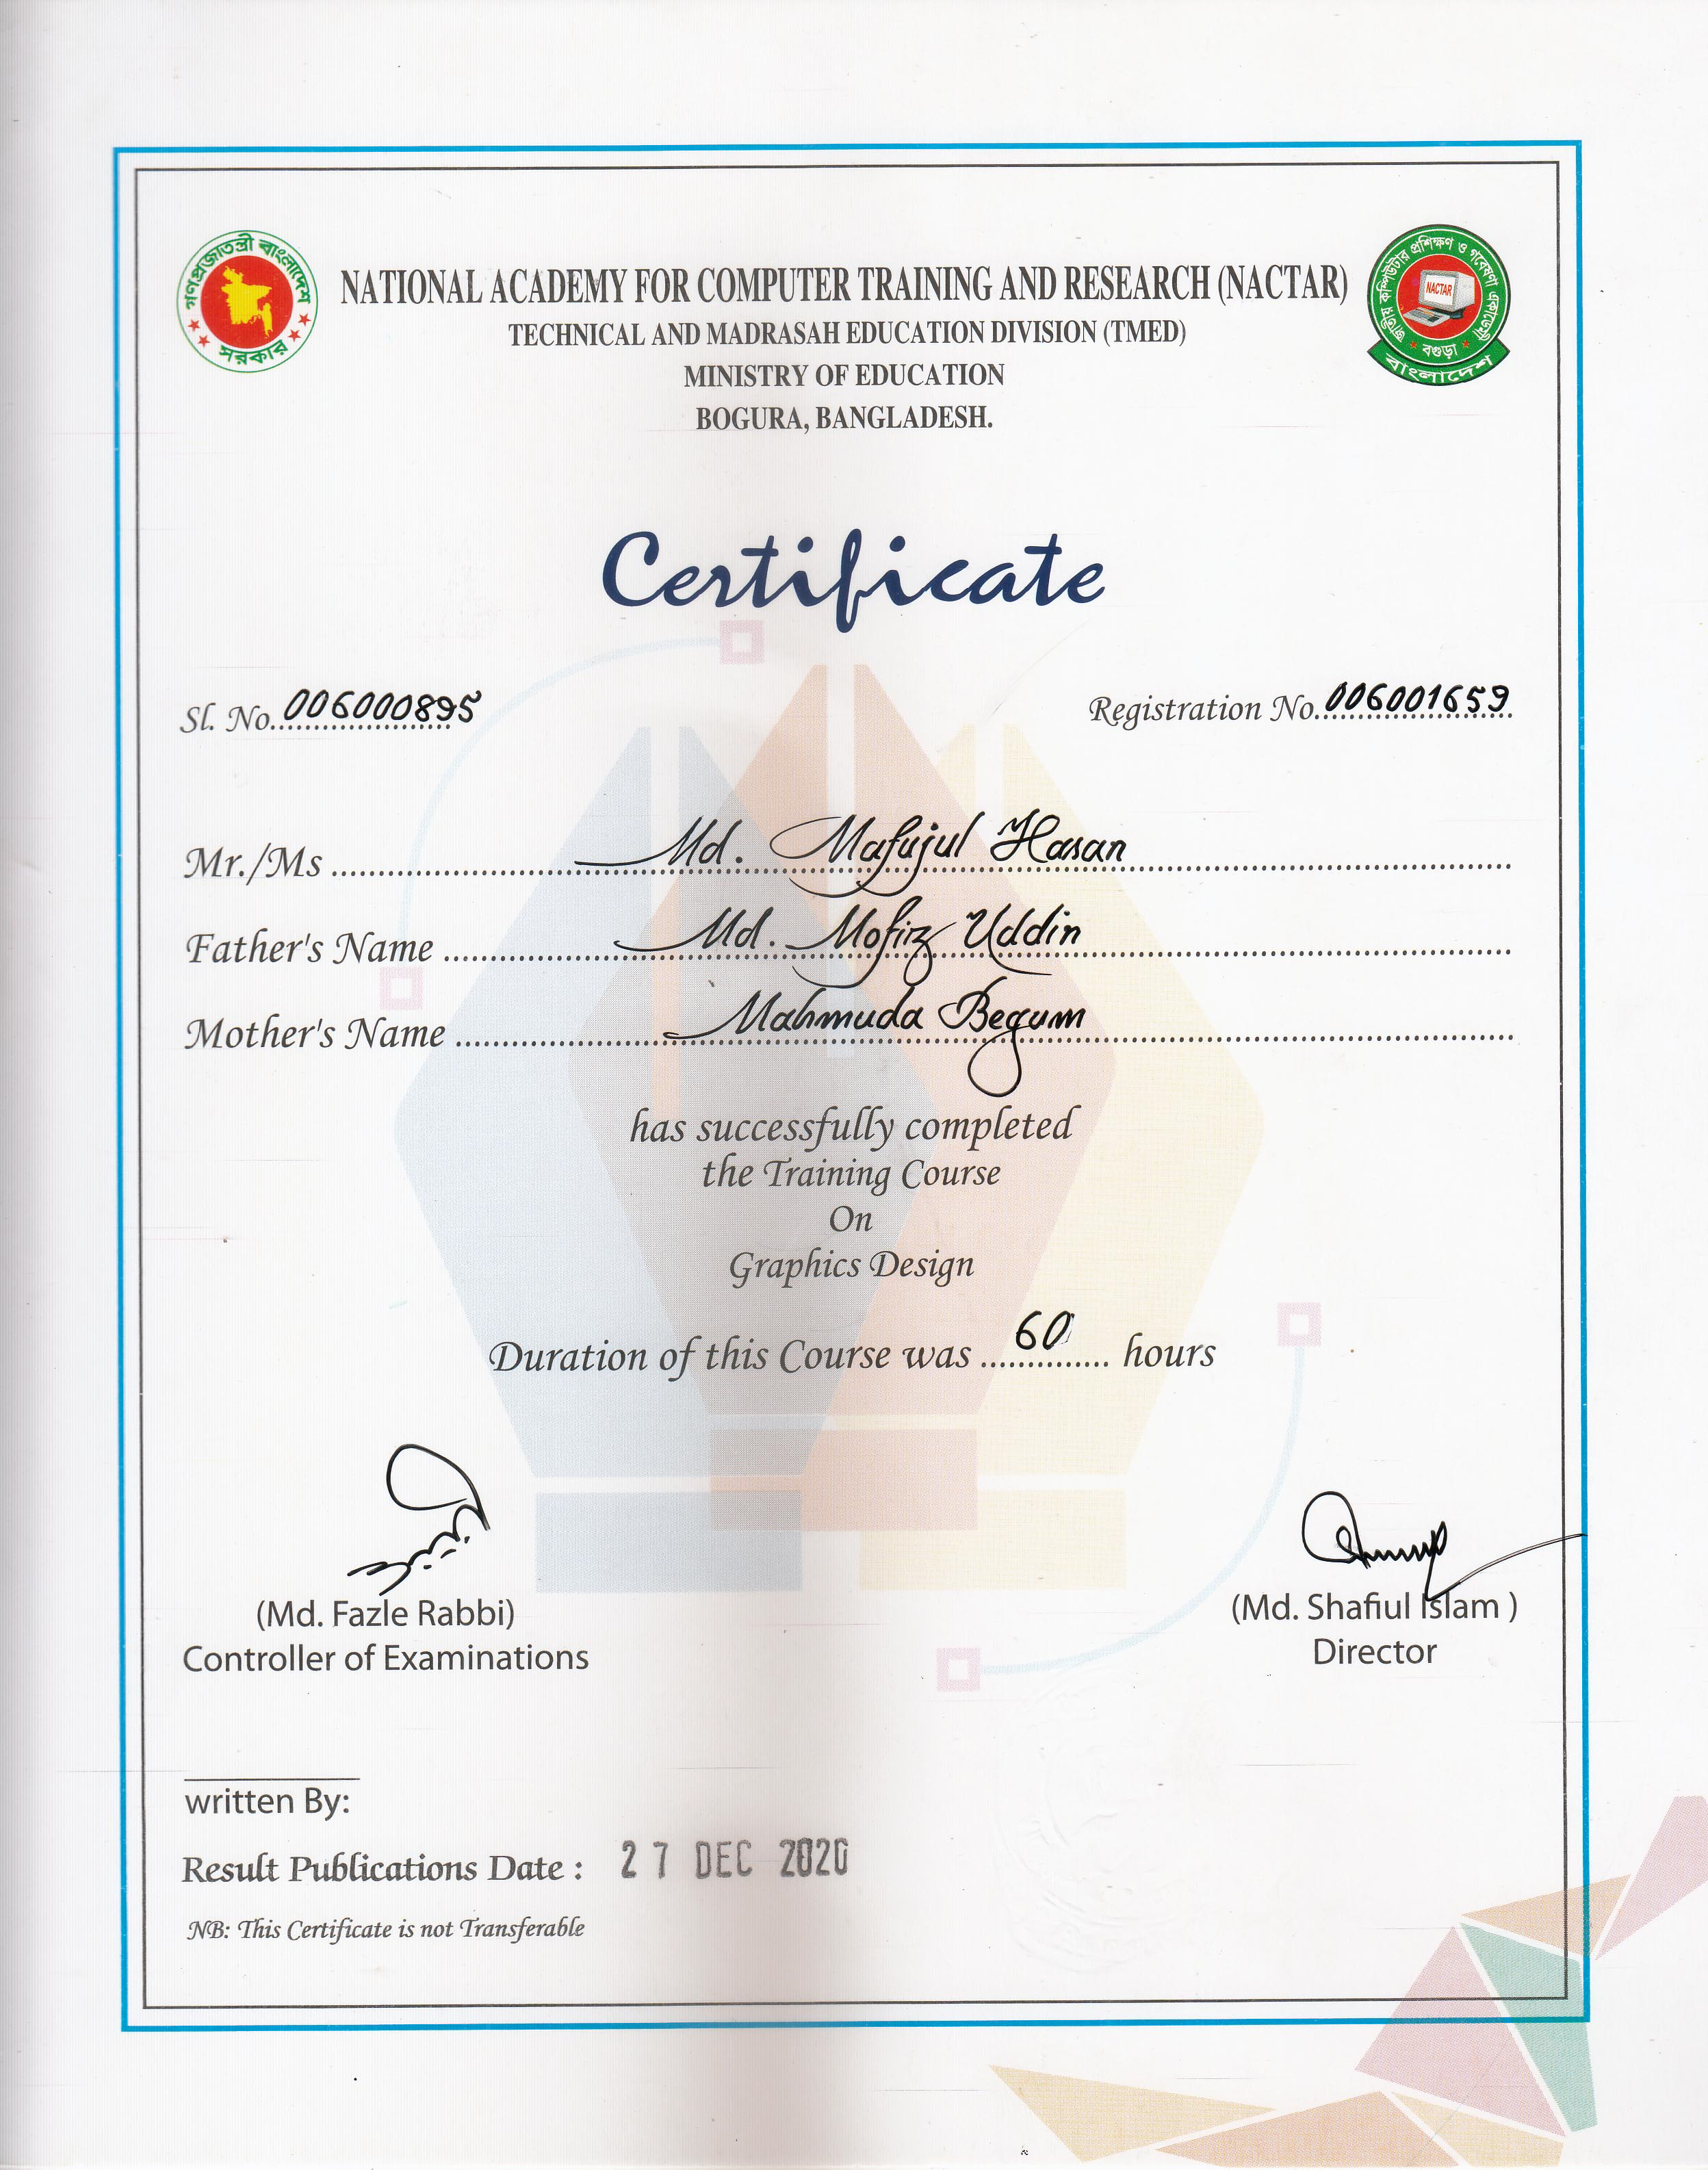 গণপ্রজাতন্ত্রী বাংলাদেশ
সরকার
NATIONAL ACADEMY FOR COMPUTER TRAINING AND RESEARCH (NACTAR)
TECHNICAL AND MADRASAH EDUCATION DIVISION (TMED)
MINISTRY OF EDUCATION
BOGURA, BANGLADESH.
জাতীয় কম্পিউটার প্রশিক্ষণ ও গবেষণা একাডেমী
NACTAR
বগুড়া
বাংলাদেশ
Certificate
Sl. No. 006000895
Registration No. 006001659
Mr./Ms Md. Mafujul Hasan
Father's Name Md. Mofiz Uddin
Mother's Name Mahmuda Begum
has successfully completed
the Training Course
On
Graphics Design
Duration of this Course was 60 hours
(Md. Fazle Rabbi)
Controller of Examinations
(Md. Shafiul Islam )
Director
written By:
Result Publications Date : 27 DEC 2020
NB: This Certificate is not Transferable